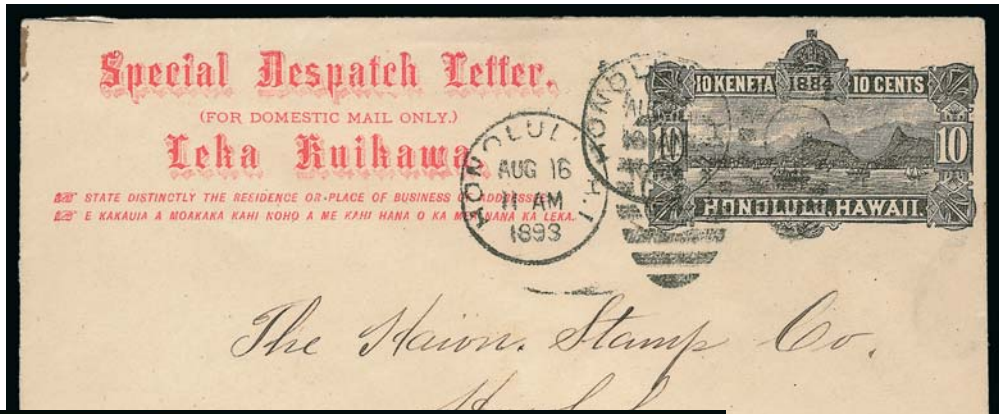 Special Despatch Letter.
(FOR DOMESTIC MAIL ONLY.)
Leka Kuikawa
STATE DISTINCTLY THE RESIDENCE OR PLACE OF BUSINESS OF ADDRESSEE
E KAKAUIA A MOAKAKA KAHI NOHO A ME KAHI HANA O KA MEA NANA KA LEKA.
HONOLULU H.I.
AUG 16
11 AM
1893
HONOLU
AU
10 KENETA 1884 10 CENTS
10 10
HONOLULU, HAWAII.
The Hawn. Stamp Co.